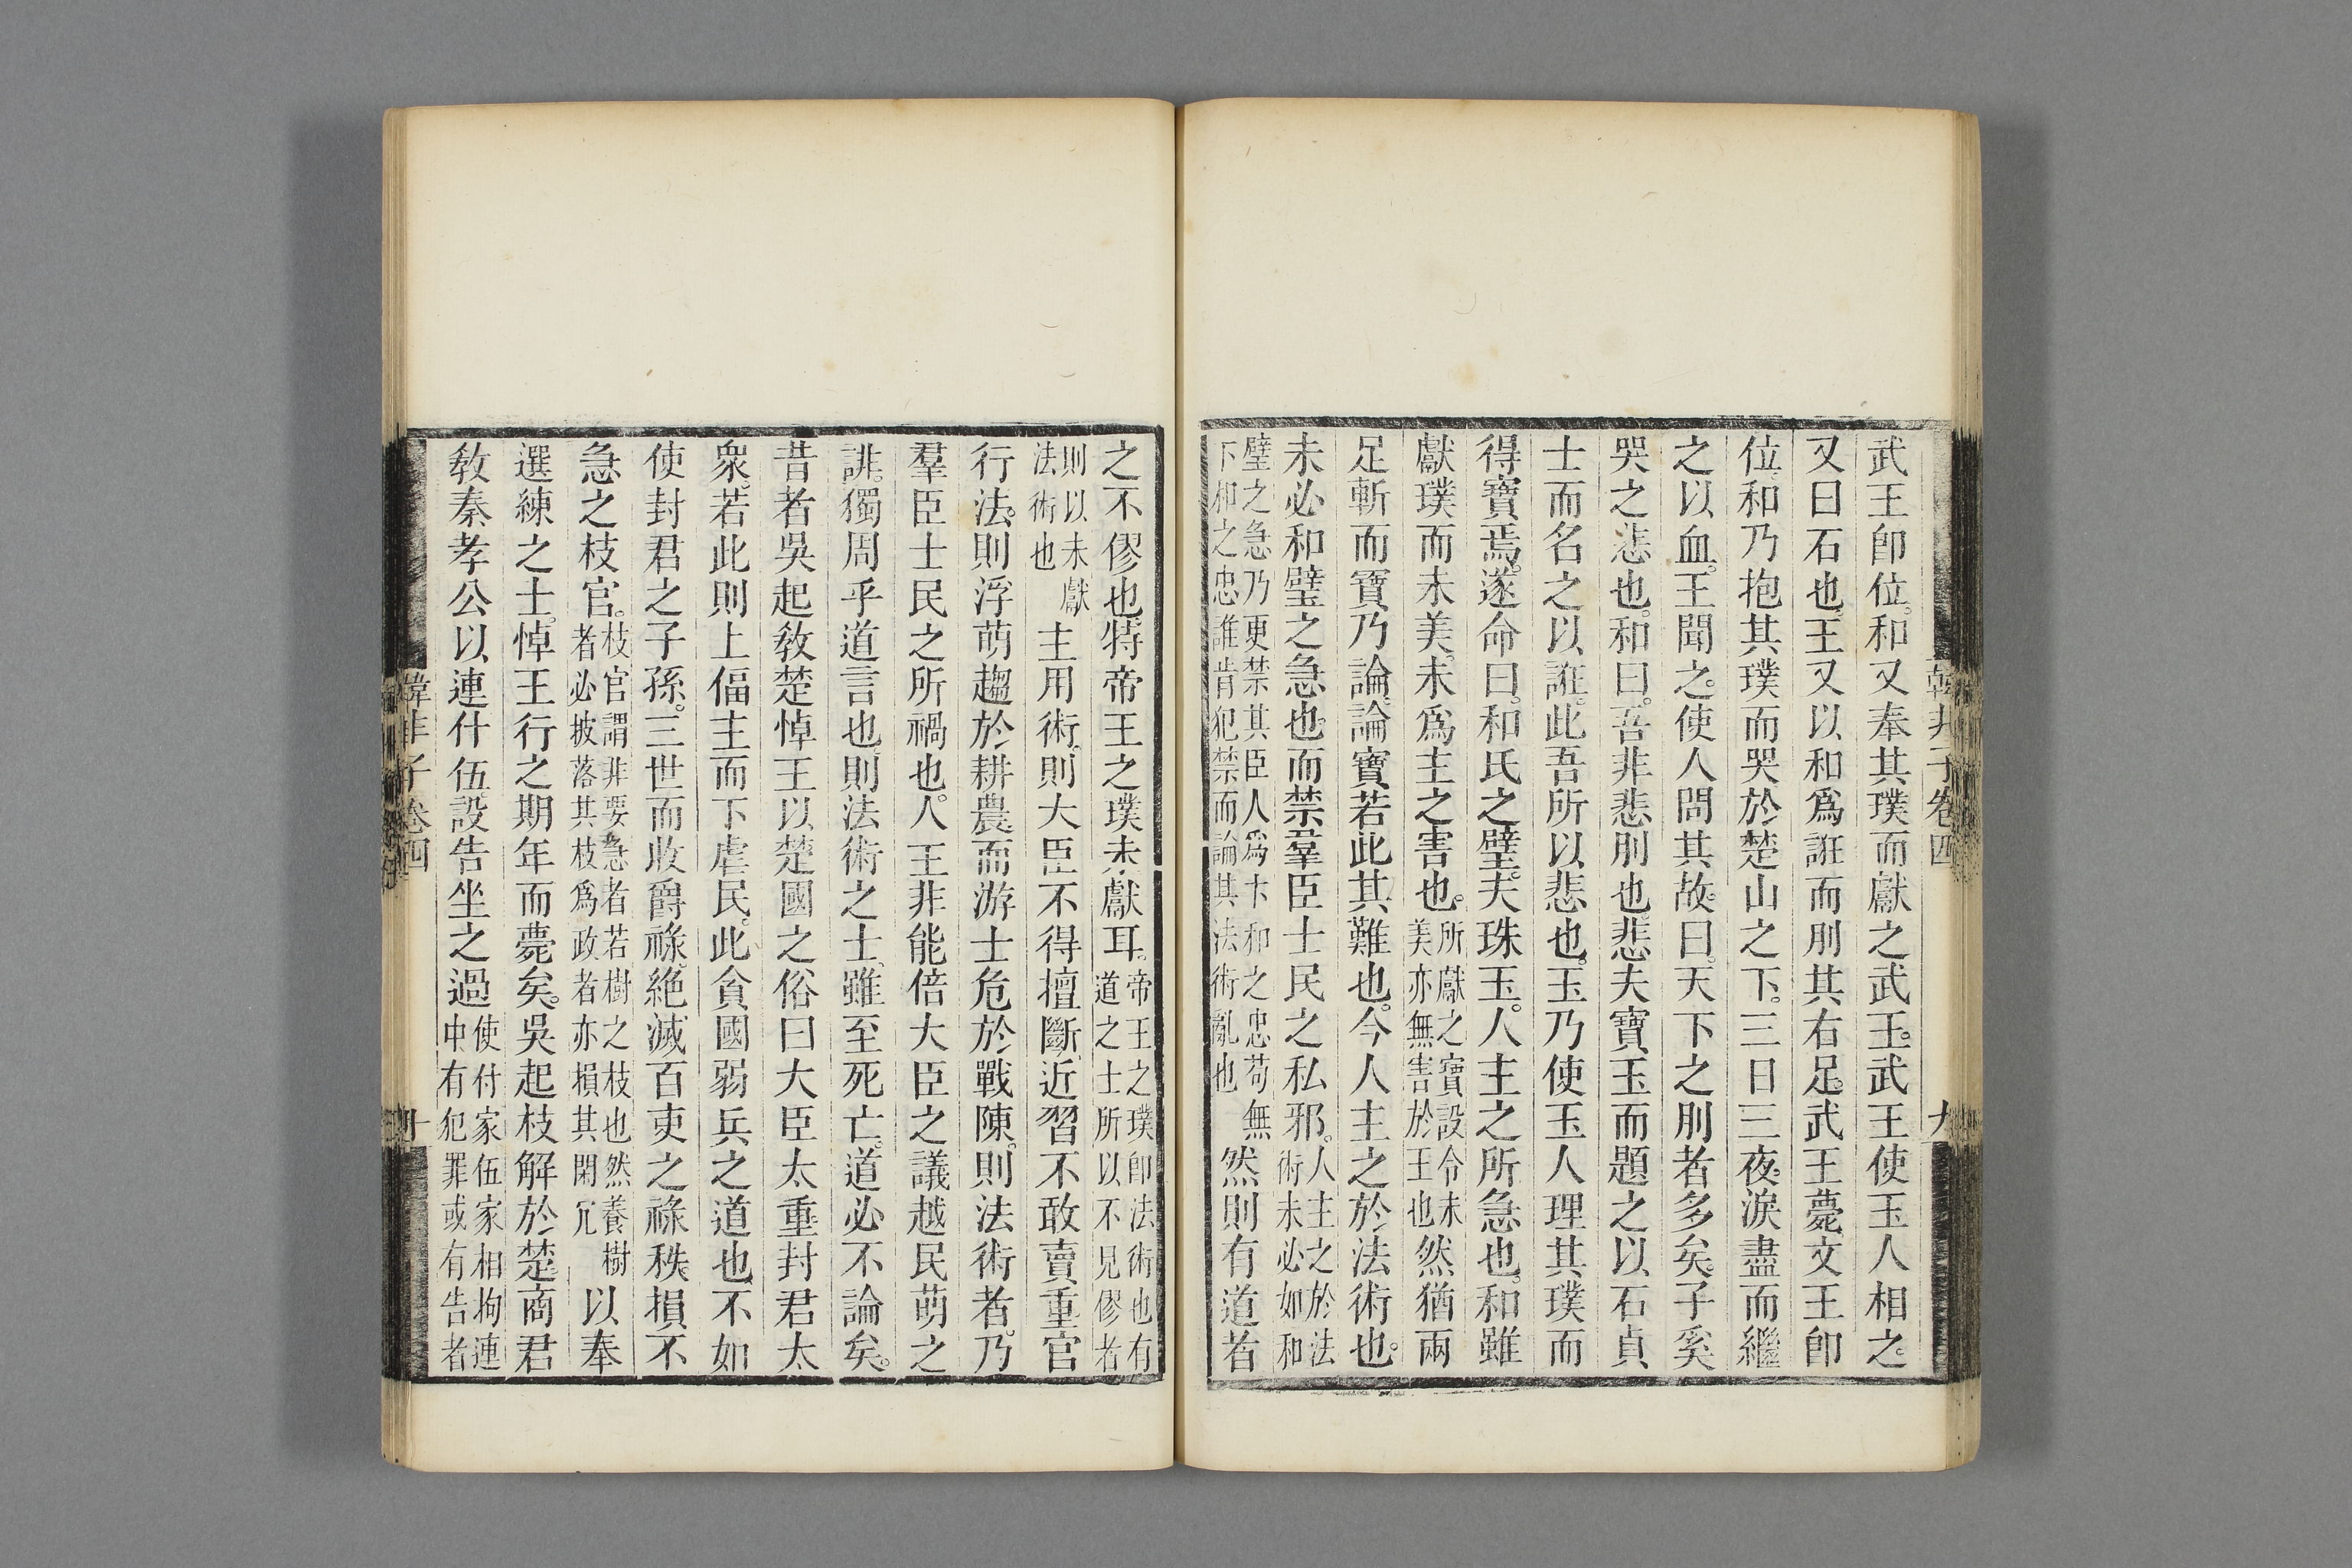 韓非子卷四
九
武王卽位。和又奉其璞而獻之武王。武王使玉人相之。
又曰石也。王又以和爲誑而刖其右足。武王薨文王卽
位。和乃抱其璞而哭於楚山之下。三日三夜。淚盡而繼
之以血。王聞之。使人問其故。曰。天下之刖者多矣。子奚
哭之悲也。和曰。吾非悲刖也。悲夫寶玉而題之以石貞
士而名之以誑。此吾所以悲也。玉乃使玉人理其璞而
得寶焉。遂命曰。和氏之璧。夫珠玉。人主之所急也。和雖
獻璞而未美。未爲主之害也。所獻之寶設令未美亦無害於王也然猶兩
足斬而寶乃論。論寶若此其難也。今人主之於法術也。
未必和璧之急也。而禁羣臣士民之私邪。人主之於法術未必如和
璧之急乃更禁其臣人爲卞和之忠苟無下和之忠誰肯犯禁而論其法術亂也然則有道者
之不僇也。特帝王之璞未獻耳。帝王之璞卽法術也有道之士所以不見僇者
則以未獻法術也主用術。則大臣不得擅斷。近習不敢賣重官
行法。則浮萌趨於耕農而游士危於戰陳。則法術者。乃
羣臣士民之所禍也。人主非能倍大臣之議越民萌之
誹。獨周乎道言也。則法術之士。雖至死亡。道必不論矣。
昔者吳起敎楚悼王以楚國之俗曰大臣太重封君太
衆。若此則上偪主而下虐民。此貪國弱兵之道也。不如
使封君之子孫。三世而收爵祿。絶滅百吏之祿秩。損不
急之枝官。枝官謂非要急者若樹之枝也然養樹者必披落其枝爲政者亦損其閑冗以奉
選練之士。悼王行之期年而薨矣。吳起枝解於楚。商君
敎秦孝公以連什伍。設告坐之過使付家伍家相拘連中有犯罪或有告者
韓非子卷四
十